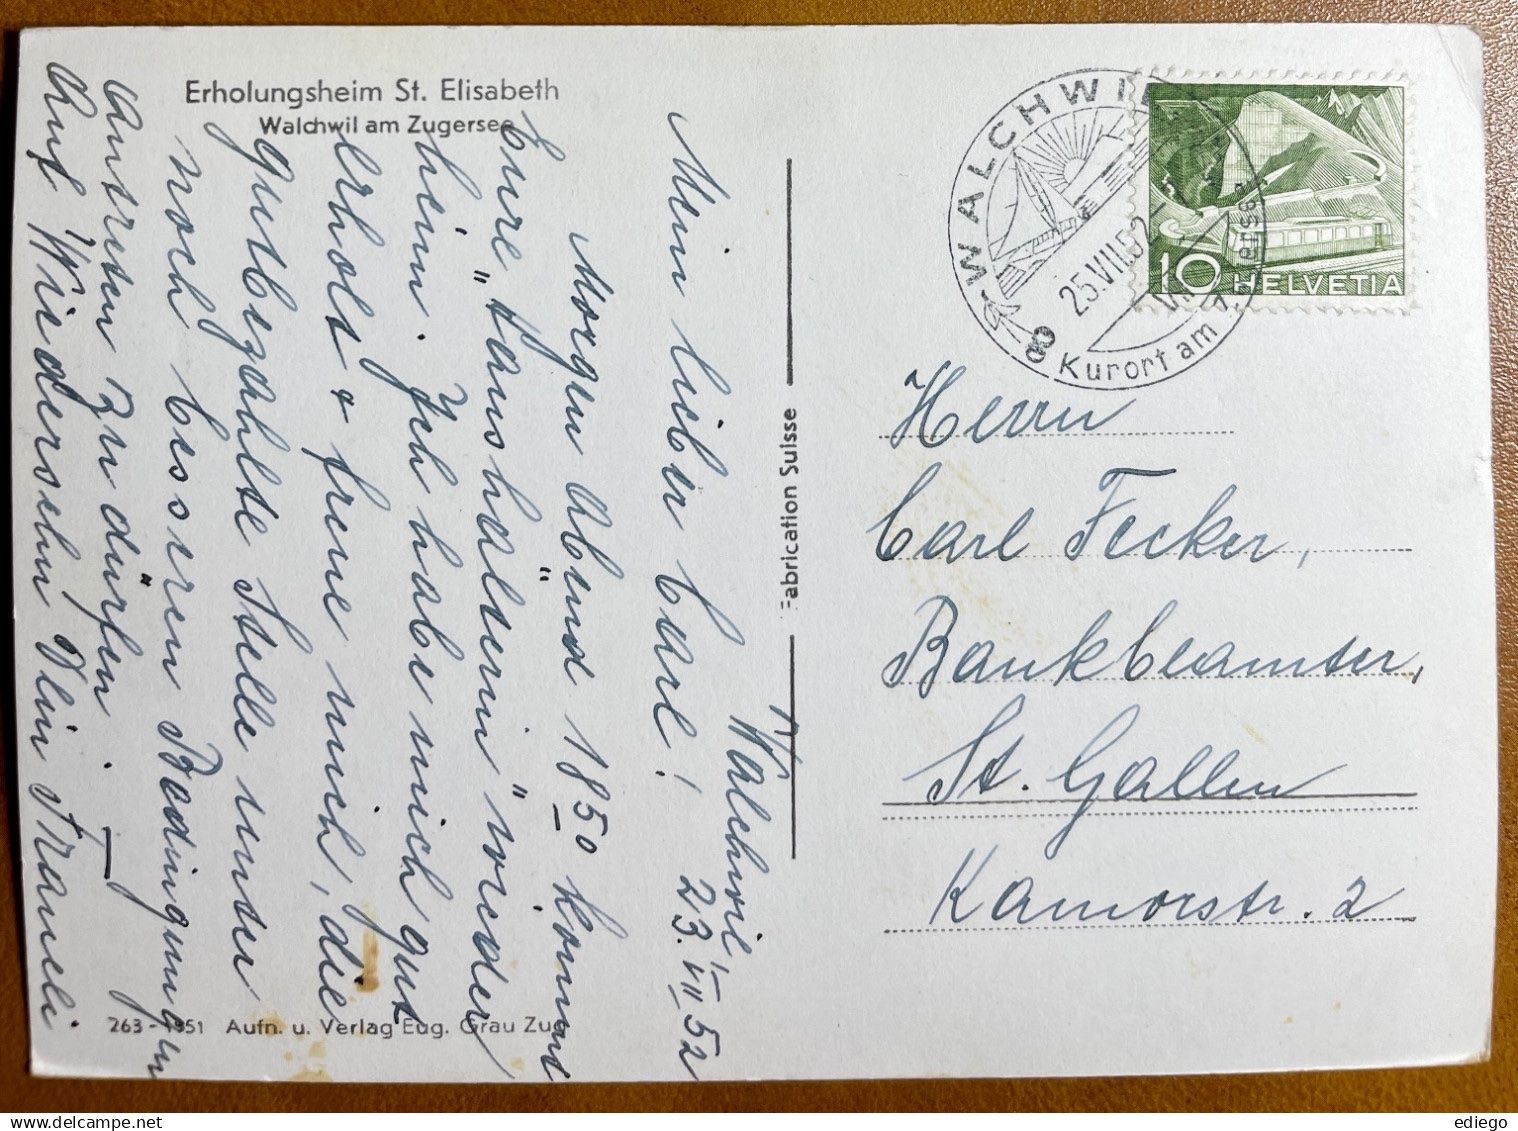 Erholungsheim St. Elisabeth
Walchwil am Zugersee
Walchwil,
23.VII 52
Mein lieber Carl!
Morgen Abend 18 50 kommt
Eure "Haushälterin" wieder
heim. Ich habe mich gut
erholt & freue mich, die
gutbezahlte Stelle unter
noch bessren Bedingungen
antreten zu dürfen. –
Auf Wiedersehn Dein Franceli
263 - 1951 Aufn. u. Verlag Eug. Grau Zug
Fabrication Suisse
WALCHWIL
25.VII.52
Kurort am
10 HELVETIA
Herrn
Carl Fecker,
Bankbeamter,
St. Gallen
Kamorstr. 2
ediego